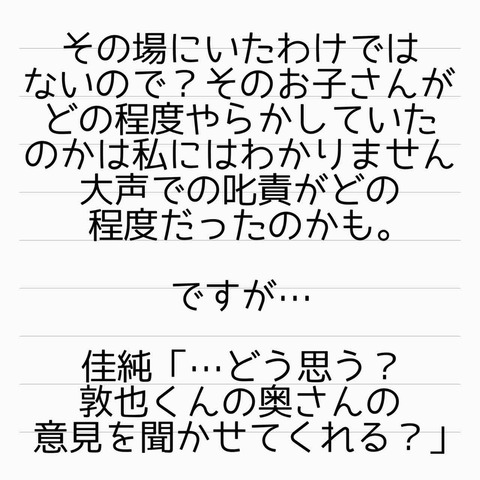 その場にいたわけでは
ないので？そのお子さんが
どの程度やらかしていた
のかは私にはわかりません
大声での叱責がどの
程度だったのかも。
ですが…
佳純「…どう思う？
敦也くんの奥さんの
意見を聞かせてくれる？」